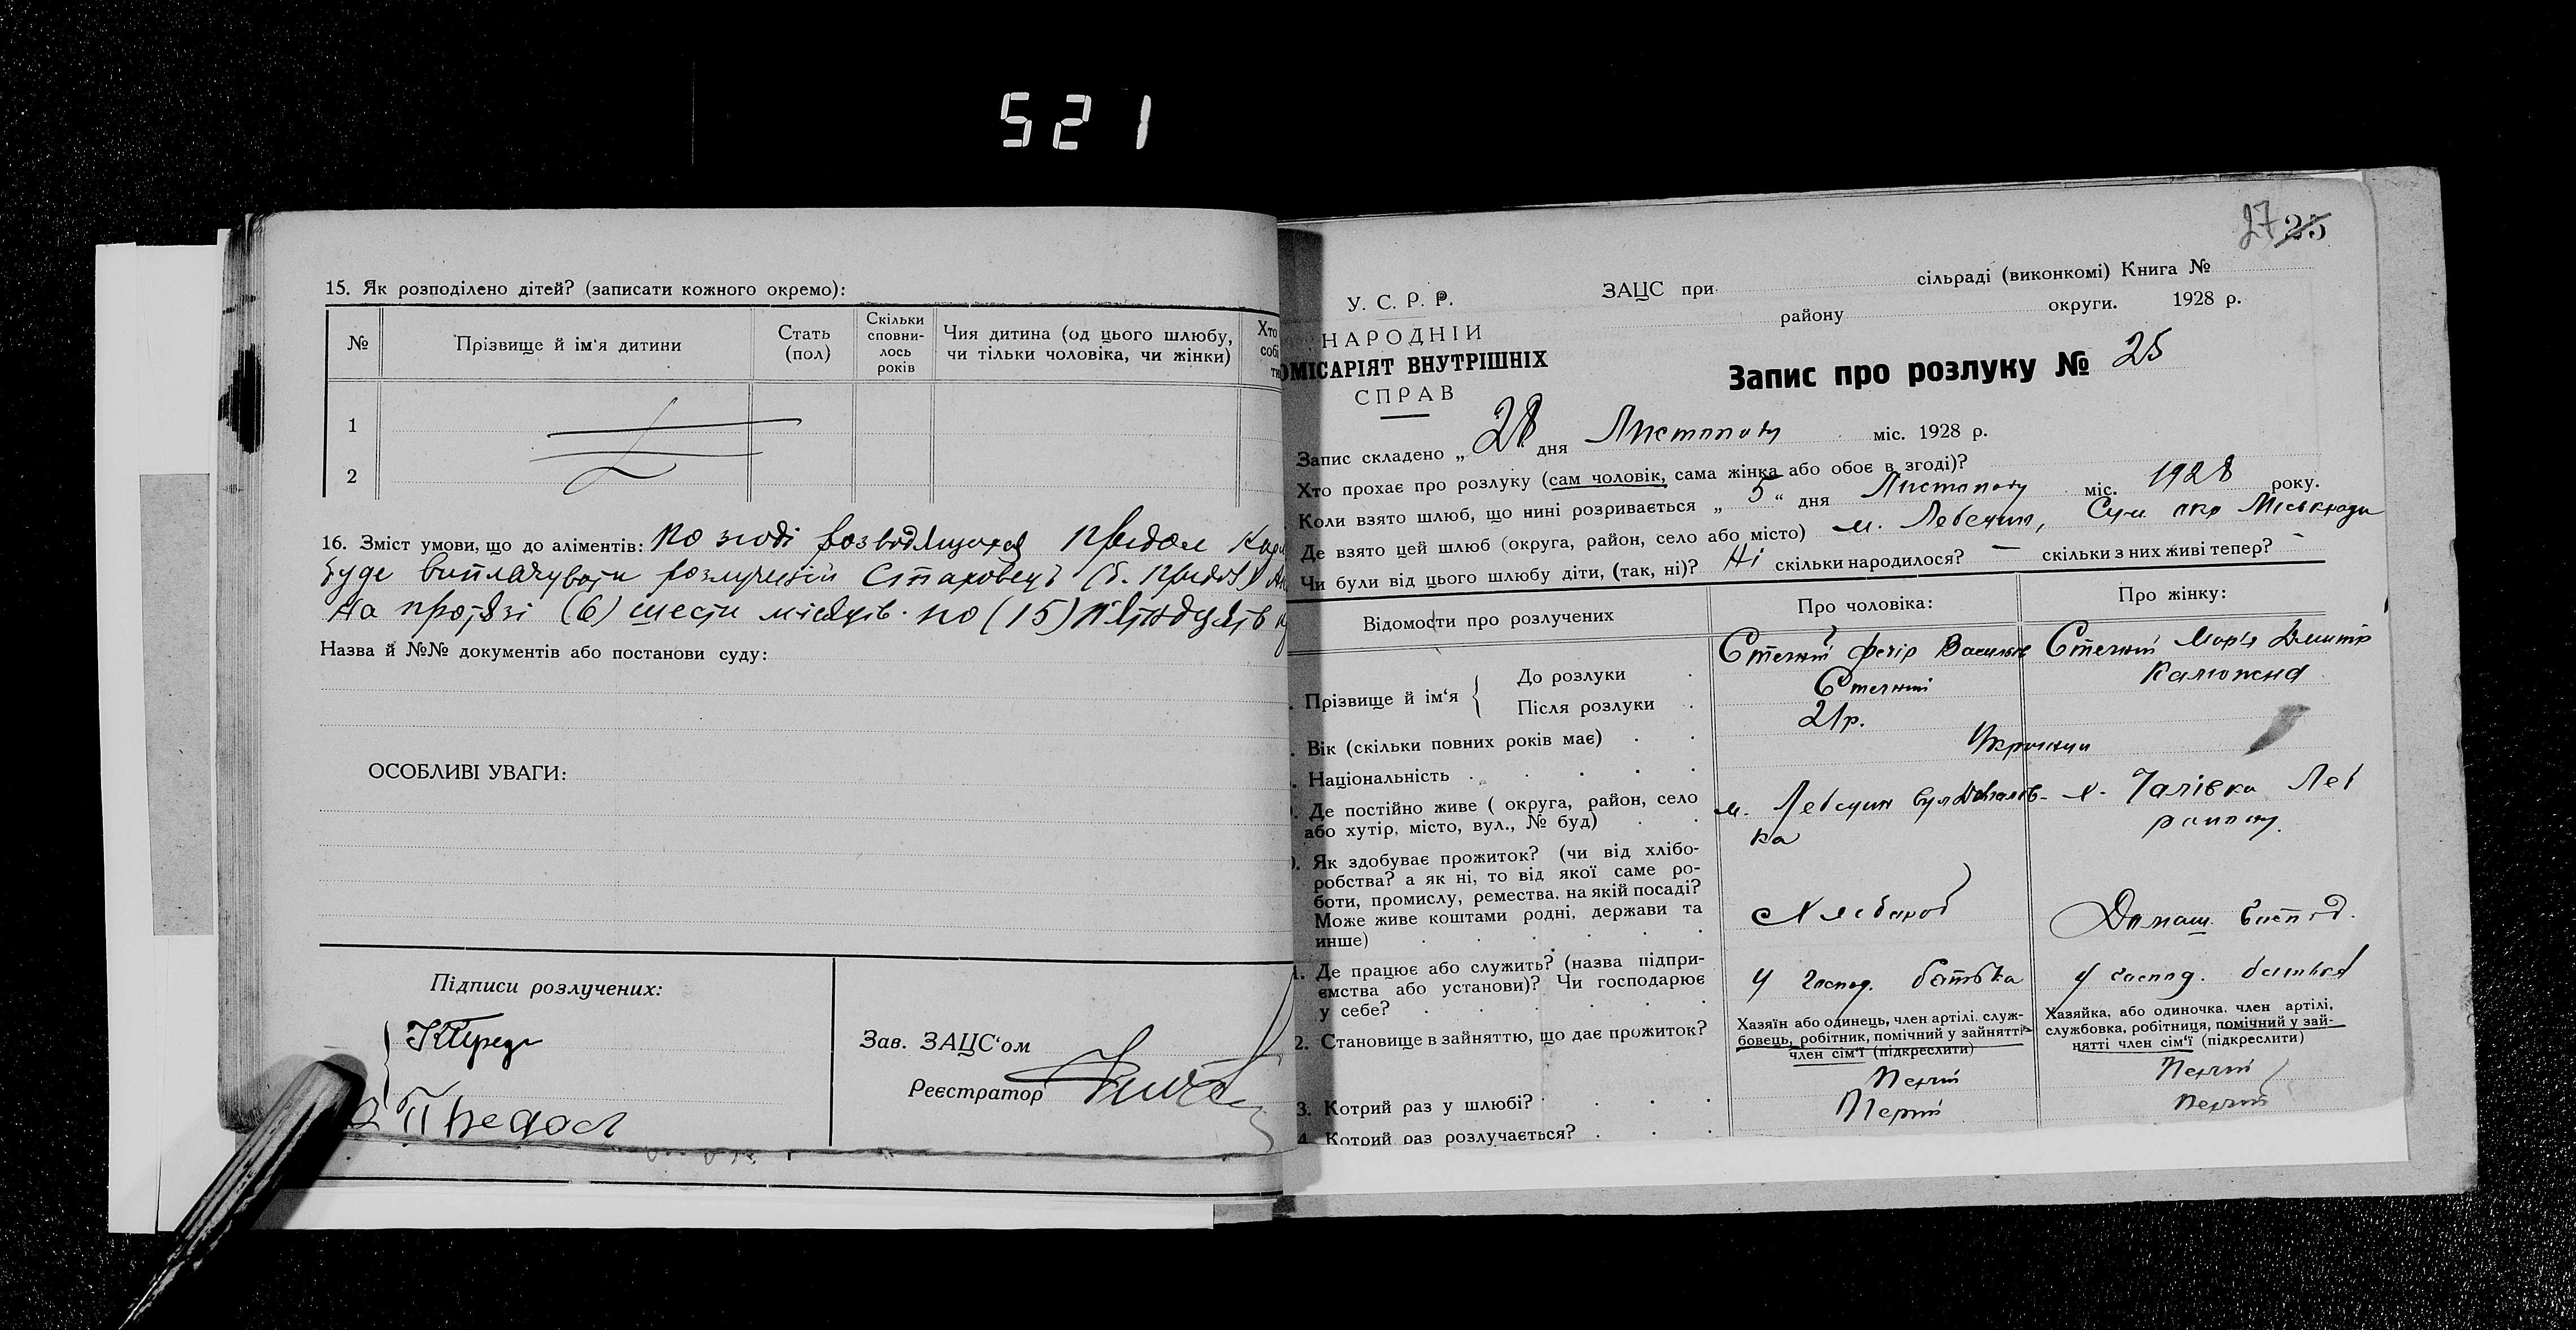 521
15. Як розподілено дітей? (записати кожного окремо):
№
Прізвище й ім'я дитини
Стать (пол)
Скільки сповни-лось років
Чия дитина (од цього шлюбу, чи тільки чоловіка, чи жінки)
Хто
1
2
16. Зміст умови, що до аліментів: По згоді
буде виплачувати
На протязі (6) шести місяців по (15)
Назва й №№ документів або постанови суду:
ОСОБЛИВІ УВАГИ:
Підписи розлучених:
Предол
Зав. ЗАЦС'ом
Реєстратор
27 25
У. С. Р. Р.
НАРОДНІЙ
ОМІСАРІЯТ ВНУТРІШНІХ
СПРАВ
ЗАЦС при сільраді (виконкомі) Книга №
району округи. 1928 р.
Запис про розлуку № 25
Запис складено „ 28 дня Листопаду міс. 1928 р.
Хто прохає про розлуку (сам чоловік, сама жінка або обоє в згоді)?
Коли взято шлюб, що нині розривається „ 5 " дня Листопаду міс. 1928 року.
Де взято цей шлюб (округа, район, село або місто) м. Лебедин, Сум. окр Міськради
Чи були від цього шлюбу діти, (так, ні)? Ні скільки народилося? — скільки з них живі тепер? -
Відомости про розлучених
Про чоловіка:
Про жінку:
Прізвище й ім'я
До розлуки
Після розлуки
Федір Васильов
Марія Дмитр
Калюжна
. Вік (скільки повних років має)
21р.
. Національність
Українці
. Де постійно живе ( округа, район, село
або хутір, місто, вул., № буд)
м. Лебедин
х. Леб
району.
. Як здобуває прожиток? (чи від хлібо-
робства? а як ні, то від якої саме ро-
боти, промислу, ремества, на якій посаді?
Може живе коштами родні, держави та
инше)
Хлібороб
Домаш. господ.
1. Де працює або служить? (назва підпри-
ємства або установи)? Чи господарює
у себе?
У господ. батька
У господ. батька
2. Становище в зайняттю, що дає прожиток?
Хазяїн або одинець, член артілі, служ-
бовець, робітник, помічний у зайнятті
член сім'ї (підкреслити)
Хазяйка, або одиночка, член артілі,
службовка, робітниця, помічний у зай-
нятті член сім'ї (підкреслити)
3. Котрий раз у шлюбі?
Перший
Перший
4. Котрий раз розлучається?
Перший
Перший